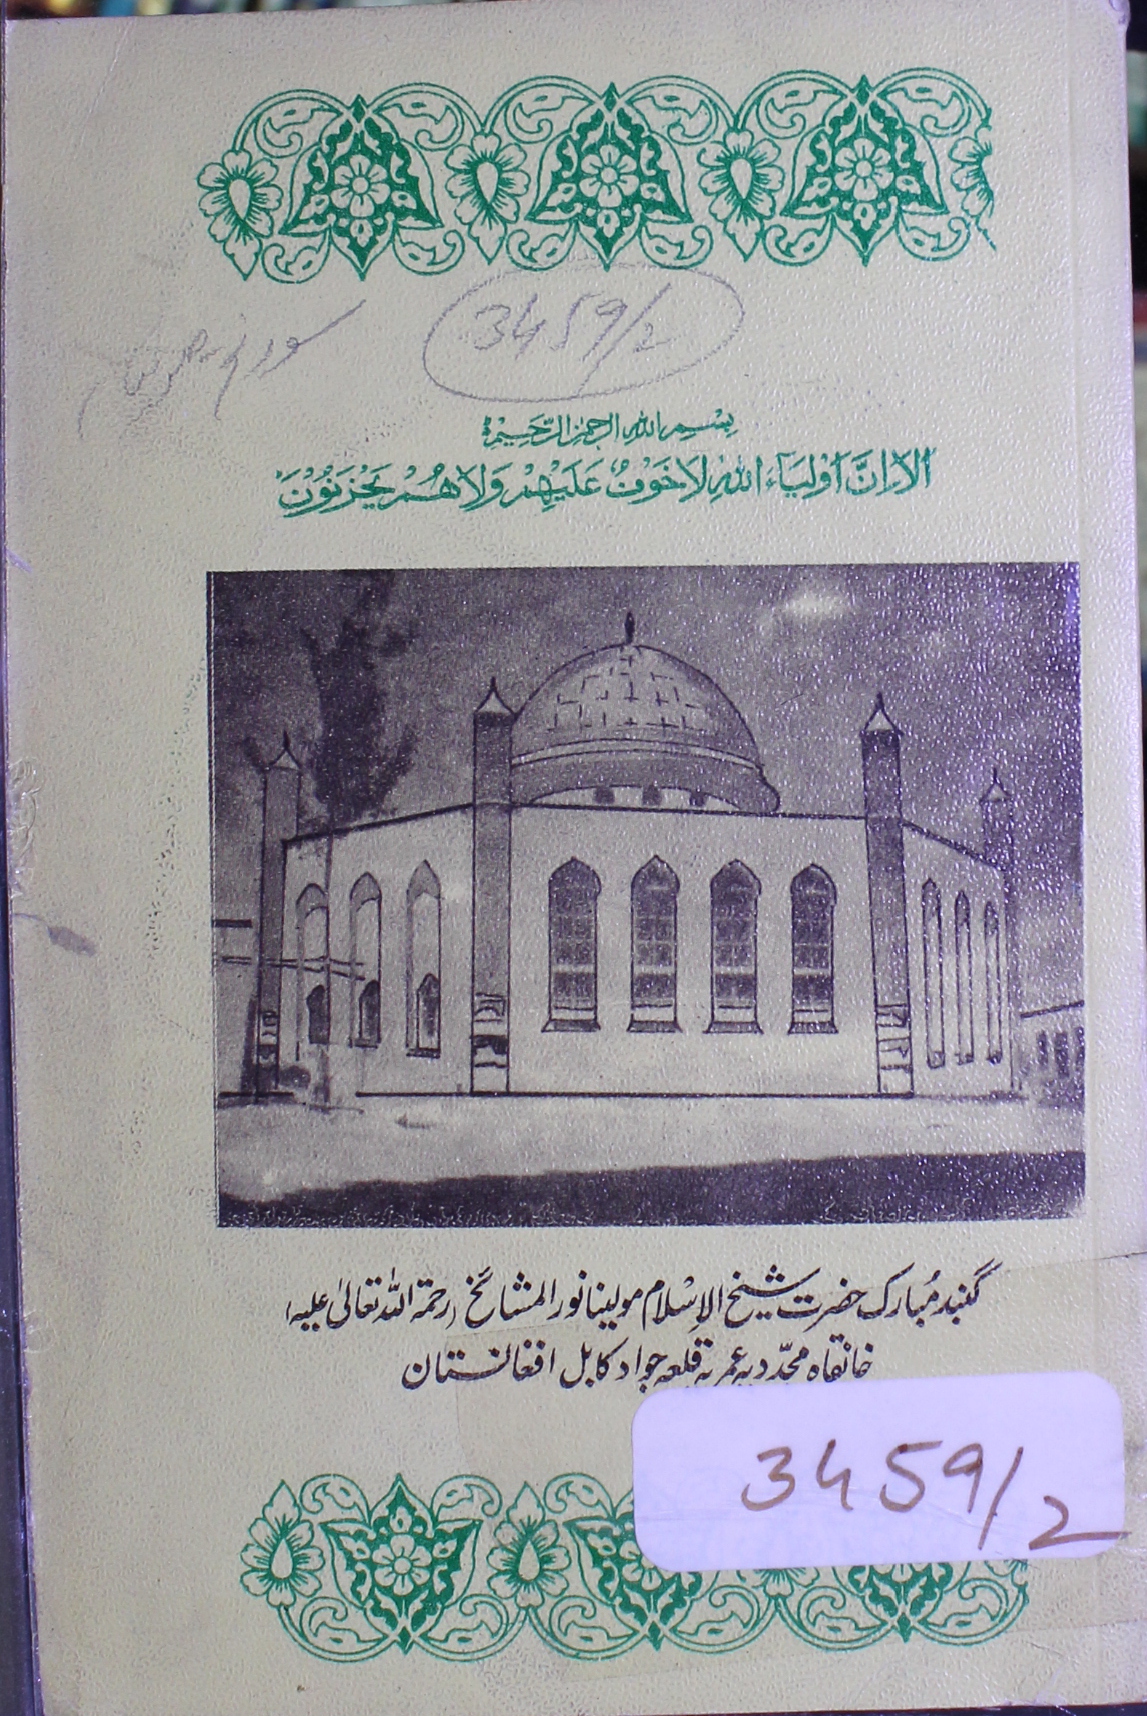 3459/2
بِسْمِ اللهِ الرَّحْمٰنِ الرَّحِيْمِ
اَلَا اِنَّ اَوْلِيَاءَ اللهِ لَا خَوْفٌ عَلَيْهِمْ وَلَا هُمْ يَحْزَنُوْنَ
گنبد مُبارک حضرت شیخ الاِسْلام مولینا نور المشائخ (رحمۃ اللہ تعالیٰ علیہ)
خانقاہ مجدّدیہ عمریہ قلعہ جواد کابل افغانستان
3459/2